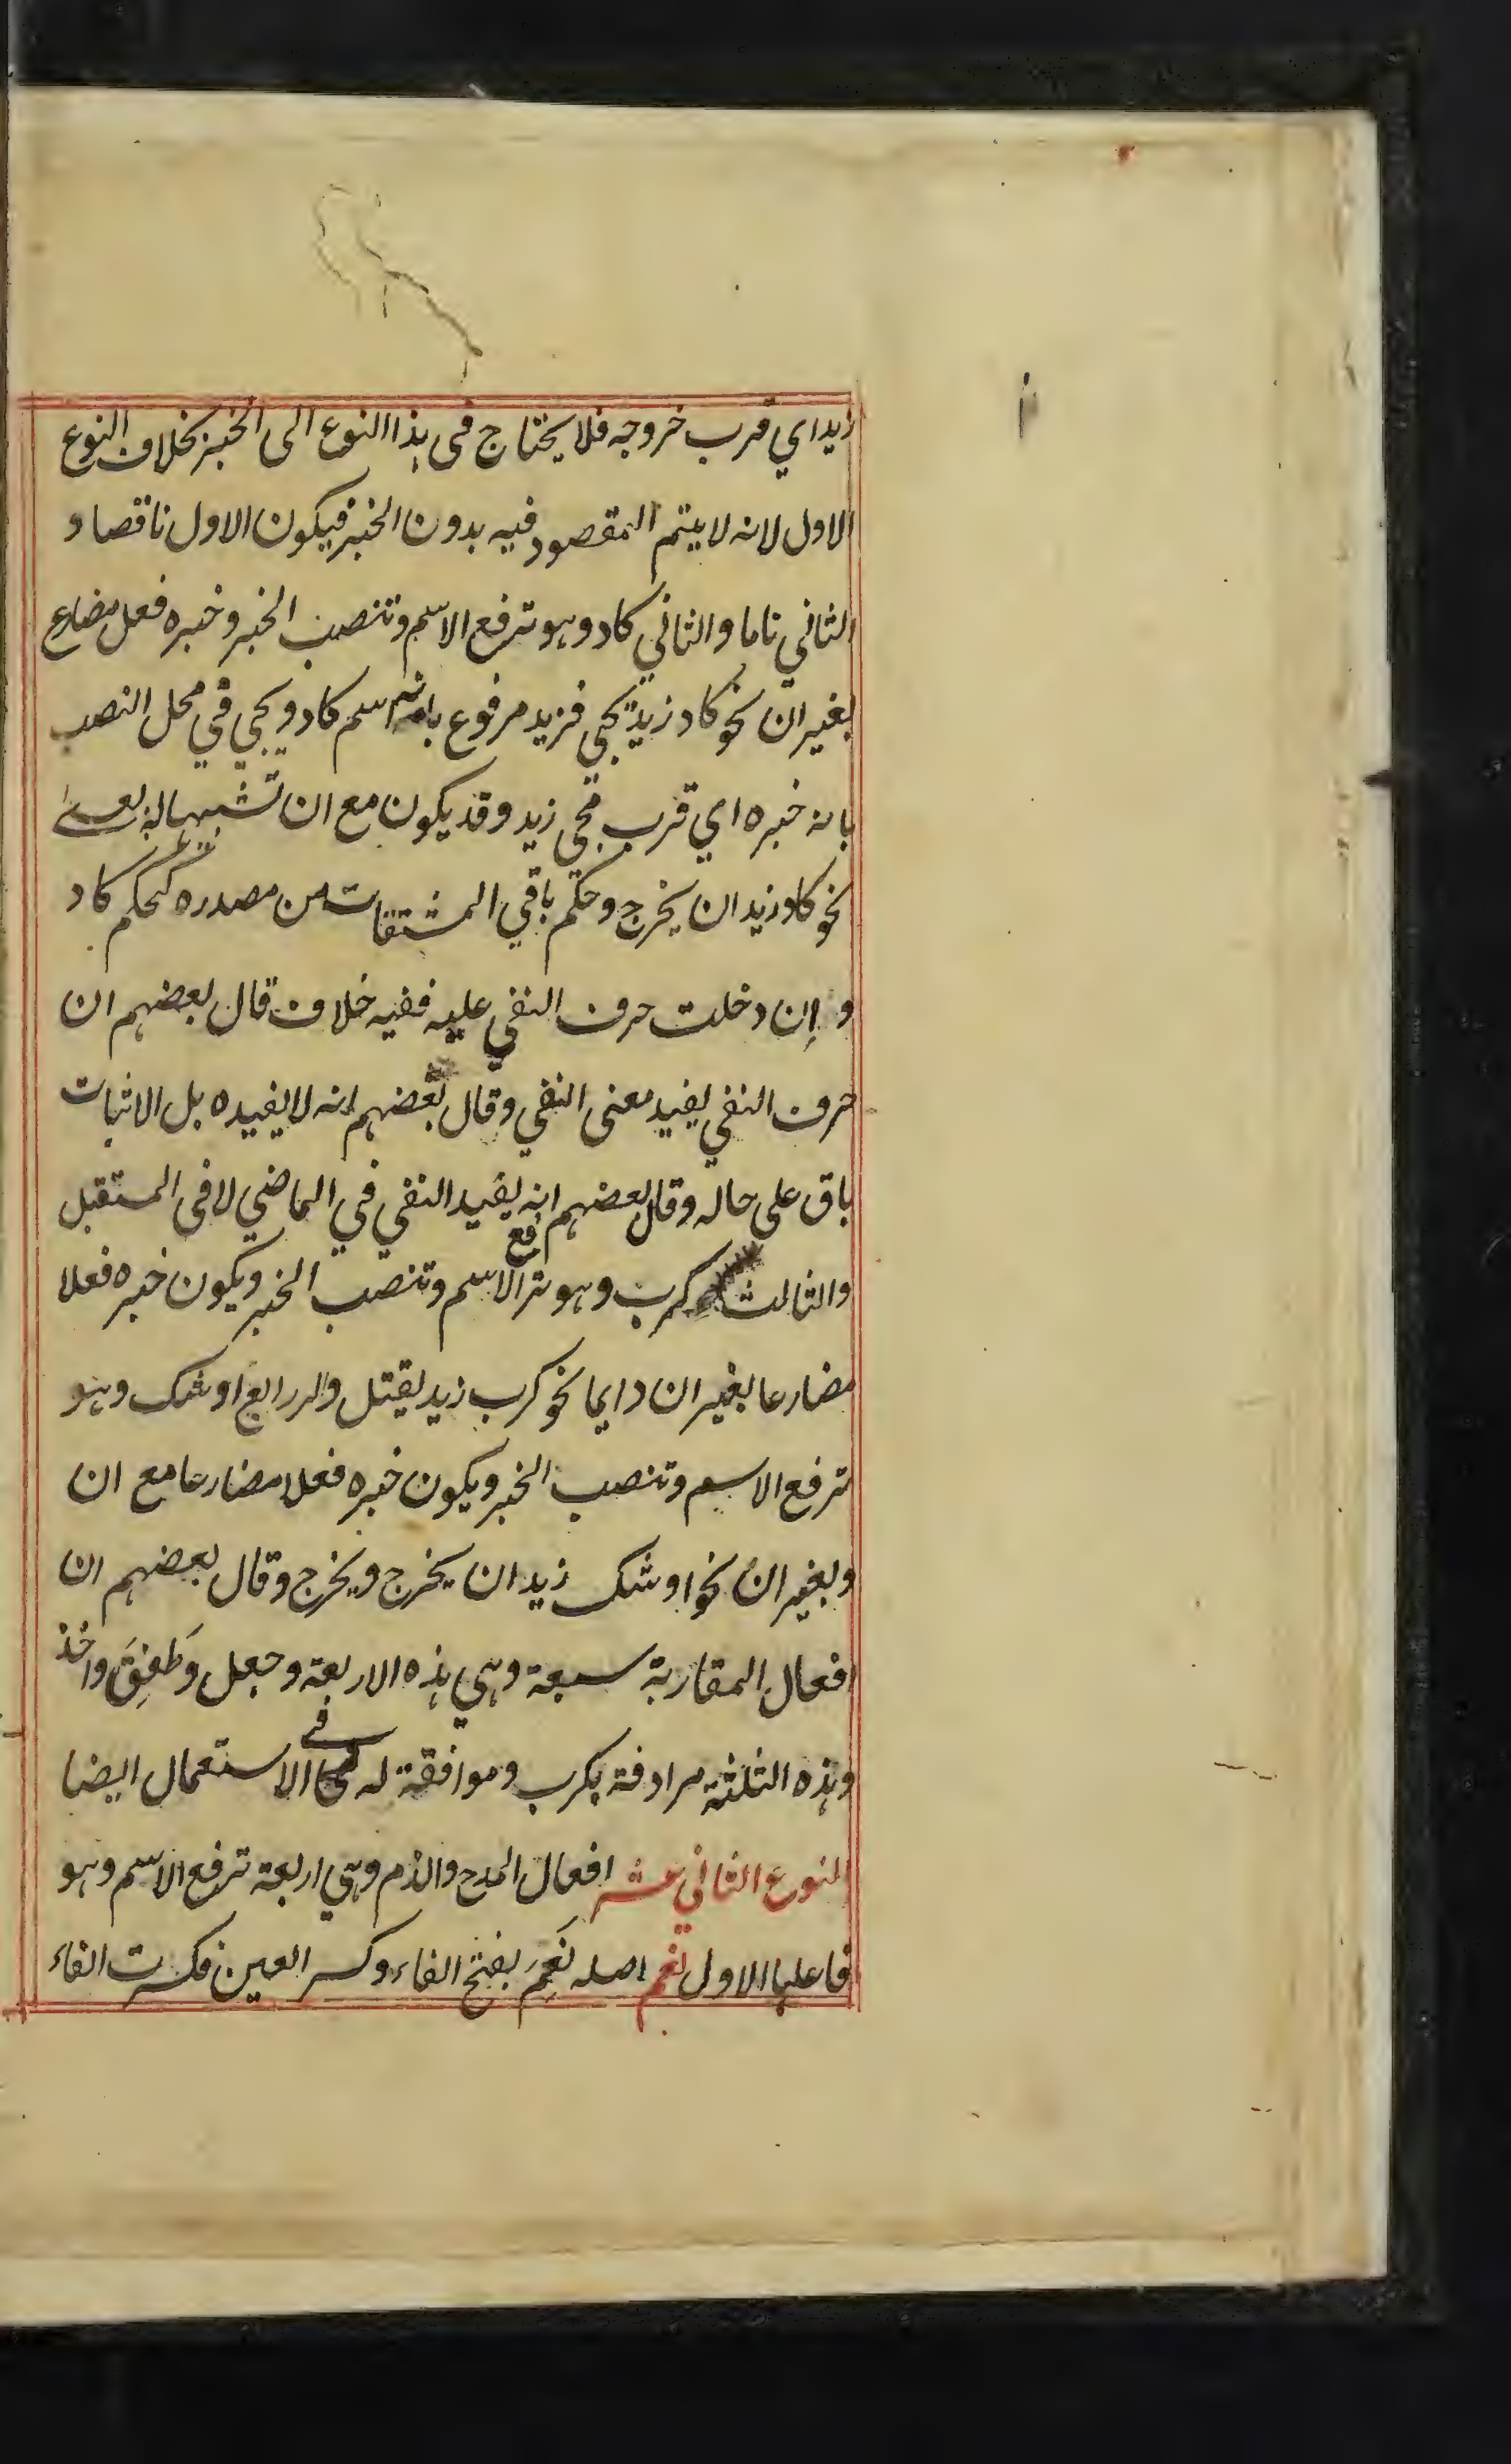 زيد اي قرب خروجه فلا يحتاج في هذا النوع الى الخبر بخلاف النوع
الاول لانه لا يتم المقصود فيه بدون الخبر فيكون الاول ناقصا و
الثاني تاما والثاني كاد وهو ترفع الاسم وتنصب الخبر وخبره فعل مضارع
بغير ان نحو كاد زيد يجي فزيد مرفوع بانه اسم كاد ويجي في محل النصب
بانه خبره اي قرب مجي زيد وقد يكون مع ان تشبيها له بعسى
نحو كاد زيد ان يخرج وحكم باقي المشتقات من مصدره كحكم كاد
و إن دخلت حرف النفي عليه ففيه خلاف قال بعضهم ان
حرف النفي يفيد معنى النفي وقال بعضهم انه لا يفيده بل الاثبات
باق على حاله وقال بعضهم انه يفيد النفي في الماضي لا في المستقبل
والثالث كرب وهو ترفع الاسم وتنصب الخبر ويكون خبره فعلا
مضارعا بغير ان دايما نحو كرب زيد يقتل والرابع اوشك وهو
ترفع الاسم وتنصب الخبر ويكون خبره فعلا مضارعا مع ان
وبغير ان نحو اوشك زيد ان يخرج ويخرج وقال بعضهم ان
افعال المقاربة سبعة وهي هذه الاربعة وجعل وَطَفِقَ واخذ
وهذه الثلثة مرادفة بكرب وموافقة له في الاستعمال ايضا
النوع الثاني عشر افعال المدح والذم وهي اربعة ترفع الاسم وهو
فاعلها الاول نعم اصله نَعِمَ بفتح الفاء وكسر العين فكسرت الفاء